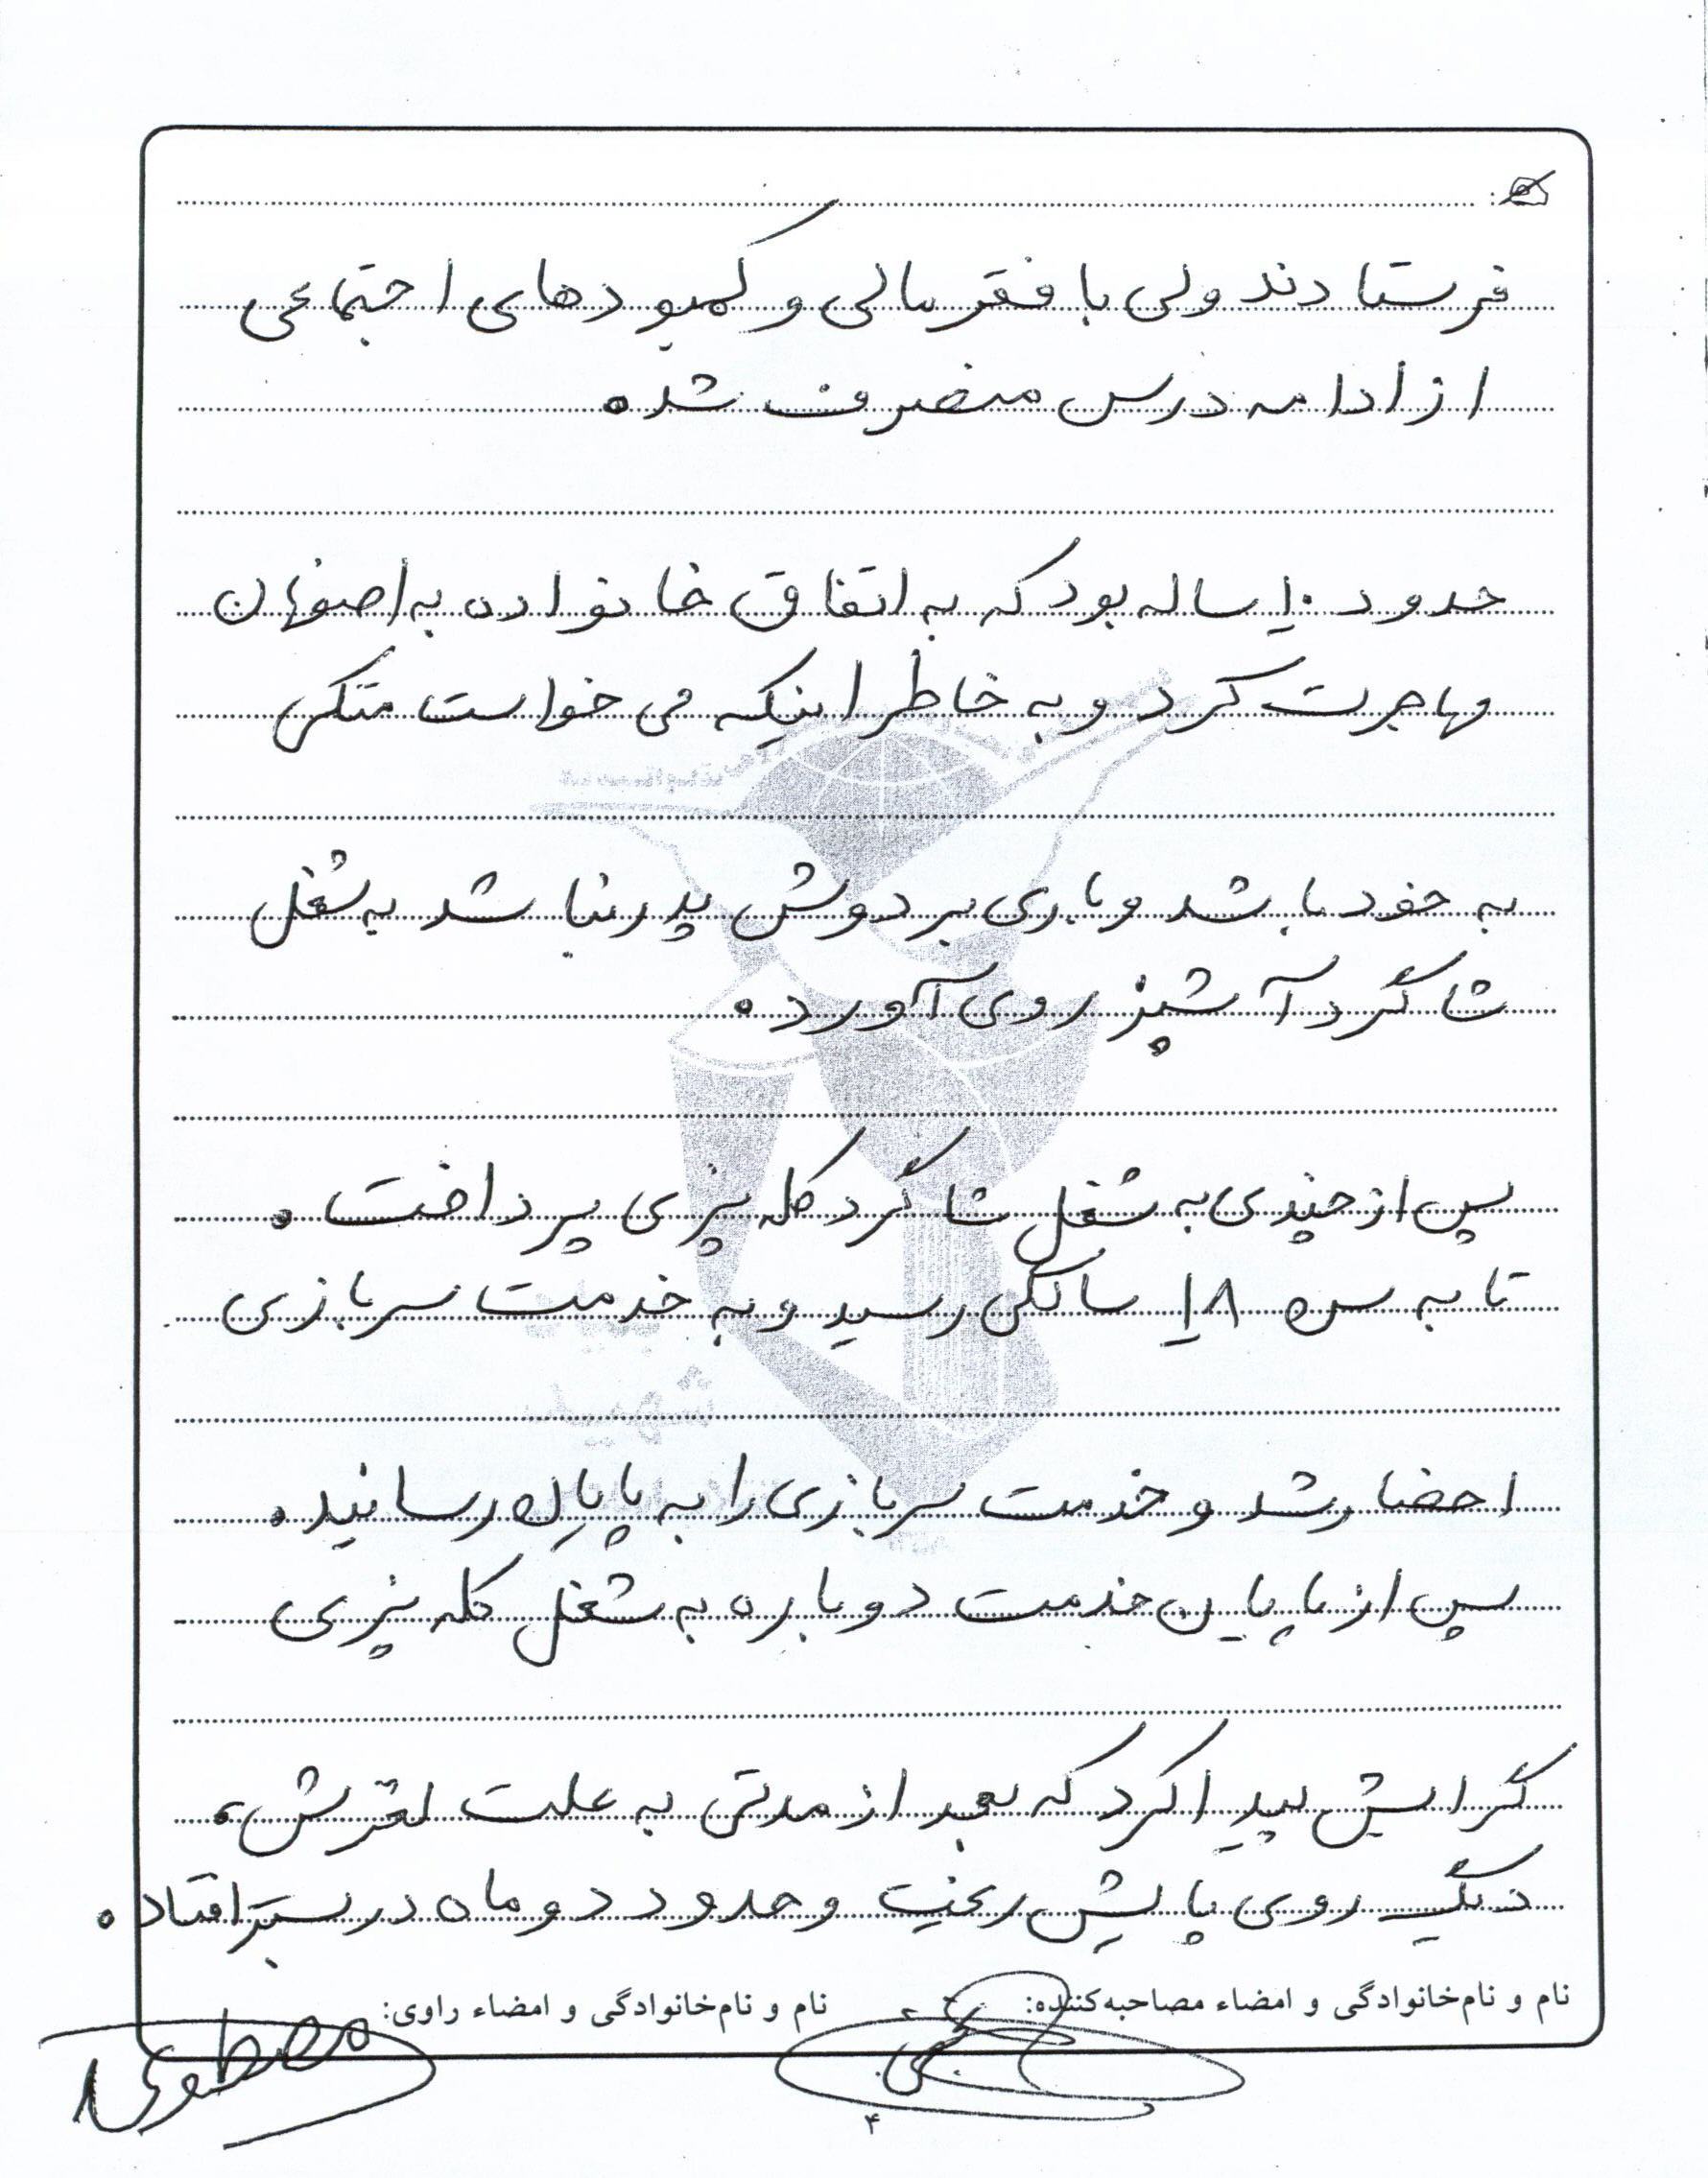 فرستادند ولی با فقر مالی و کمبودهای اجتماعی
از ادامه درس منصرف شد.
حدود ۱۰ ساله بود که به اتفاق خانواده به اصفهان
مهاجرت کرد و به خاطر اینکه می خواست متکی
به خود باشد و باری بر دوش پدر نباشد به شغل
شاگرد آشپز روی آورد.
پس از چندی به شغل شاگرد کله پزی پرداخت.
تا به سن ۱۸ سالگی رسید و به خدمت سربازی
احضار شد و خدمت سربازی را به پایان رسانید.
پس از پایان خدمت دوباره به شغل کله پزی
گرایش پیدا کرد که بعد از مدتی به علت لغزش،
دیگ روی پایش ریخت و حدود دو ماه در بستر افتاد.
نام و نام‌خانوادگی و امضاء مصاحبه‌کننده:
نام و نام‌خانوادگی و امضاء راوی:
۴
شهید